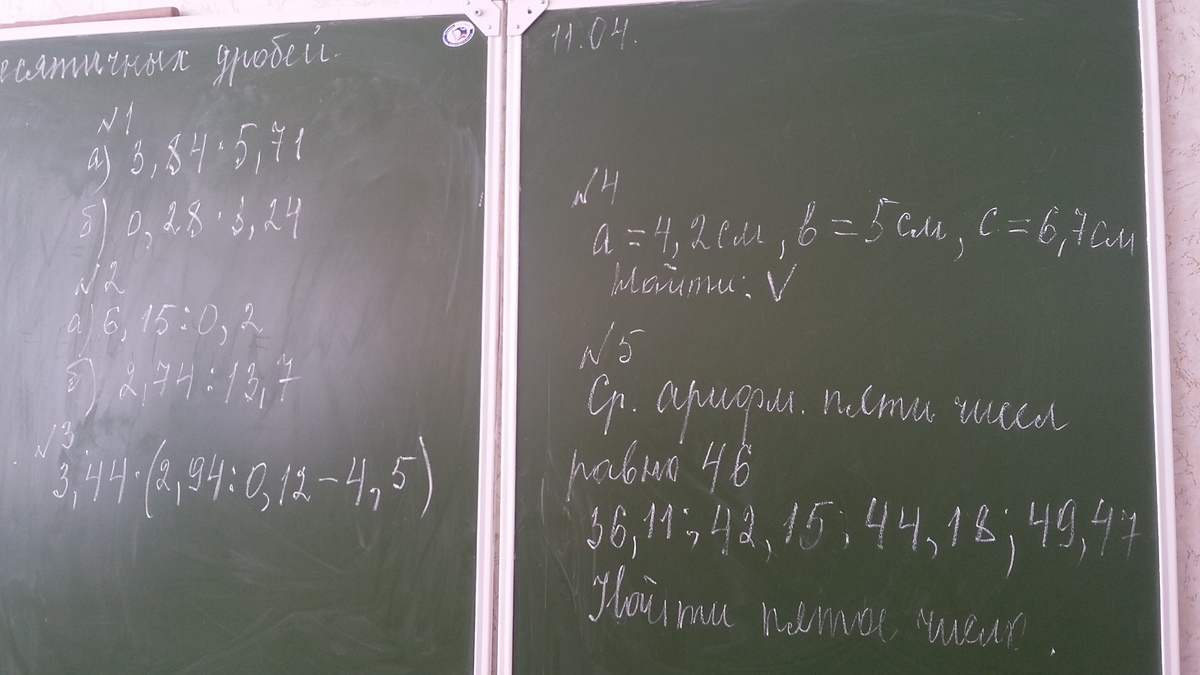 есятичных дробей.
№1
а) 3,84·5,71
б) 0,28·3,24
№2
а) 6,15:0,2
б) 2,74:13,7
№3
3,44·(2,94:0,12-4,5)
11.04.
№4
a=4,2см, b=5см, c=6,7см
Найти: V
№5
Ср. арифм. пяти чисел
равно 46
36,11; 42,15; 44,18; 49,47
Найти пятое число.